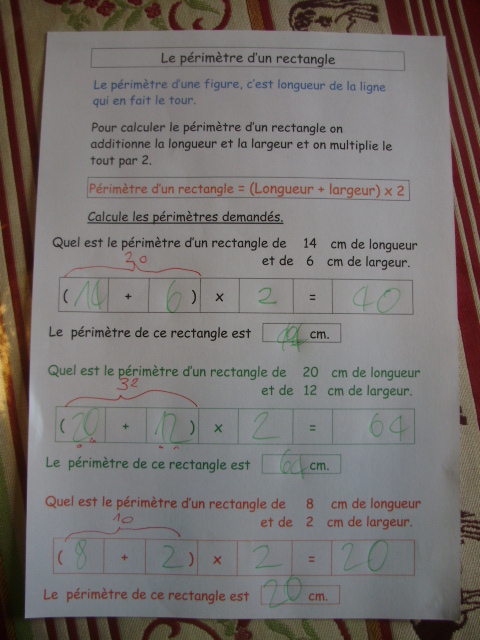 Le périmètre d'un rectangle
Le périmètre d'une figure, c'est longueur de la ligne
qui en fait le tour.
Pour calculer le périmètre d'un rectangle on
additionne la longueur et la largeur et on multiplie le
tout par 2.
Périmètre d'un rectangle = (Longueur + largeur) x 2
Calcule les périmètres demandés.
Quel est le périmètre d'un rectangle de 14 cm de longueur
et de 6 cm de largeur.
20
( 14 + 6 ) x 2 = 40
Le périmètre de ce rectangle est cm.
Quel est le périmètre d'un rectangle de 20 cm de longueur
et de 12 cm de largeur.
32
( 20 + 12 ) x 2 = 64
Le périmètre de ce rectangle est 64 cm.
Quel est le périmètre d'un rectangle de 8 cm de longueur
et de 2 cm de largeur.
10
( 8 + 2 ) x 2 = 20
Le périmètre de ce rectangle est 20 cm.